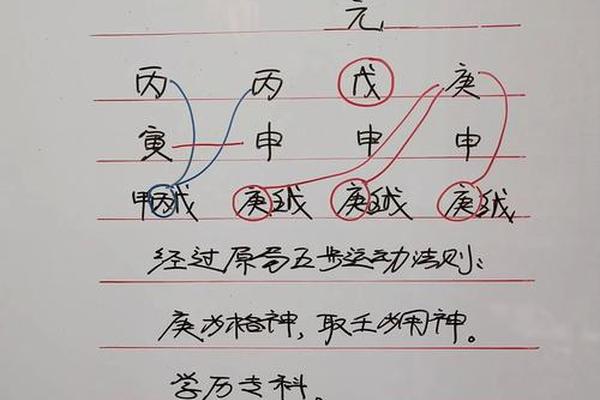 元
丙 丙 戊 庚
寅 申 申 申
甲丙戊 庚壬戊 庚壬戊 庚壬戊
经过原局五步运动法则:
庚为格神,取壬为用神。
学历专科。